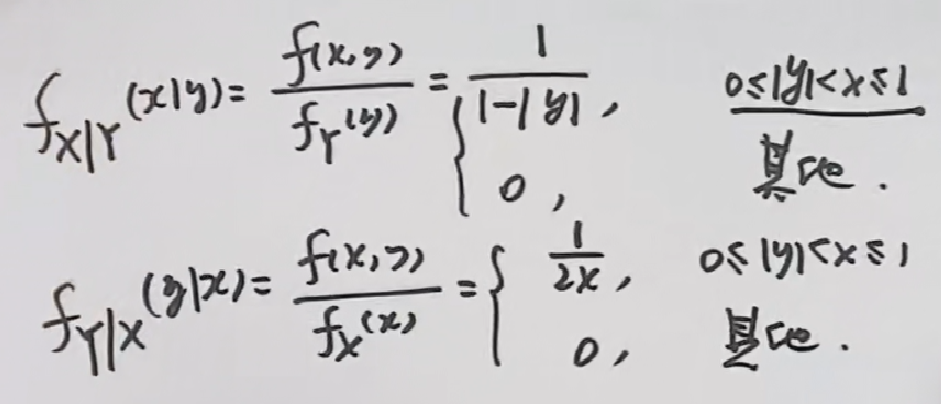 f_{X|Y}(x|y) = \frac{f(x,y)}{f_Y(y)} = \begin{cases} \frac{1}{1-|y|}, & 0≤|y|<x≤1 \\ 0, & 其他. \end{cases}
f_{Y|X}(y|x) = \frac{f(x,y)}{f_X(x)} = \begin{cases} \frac{1}{2x}, & 0≤|y|<x≤1 \\ 0, & 其他. \end{cases}